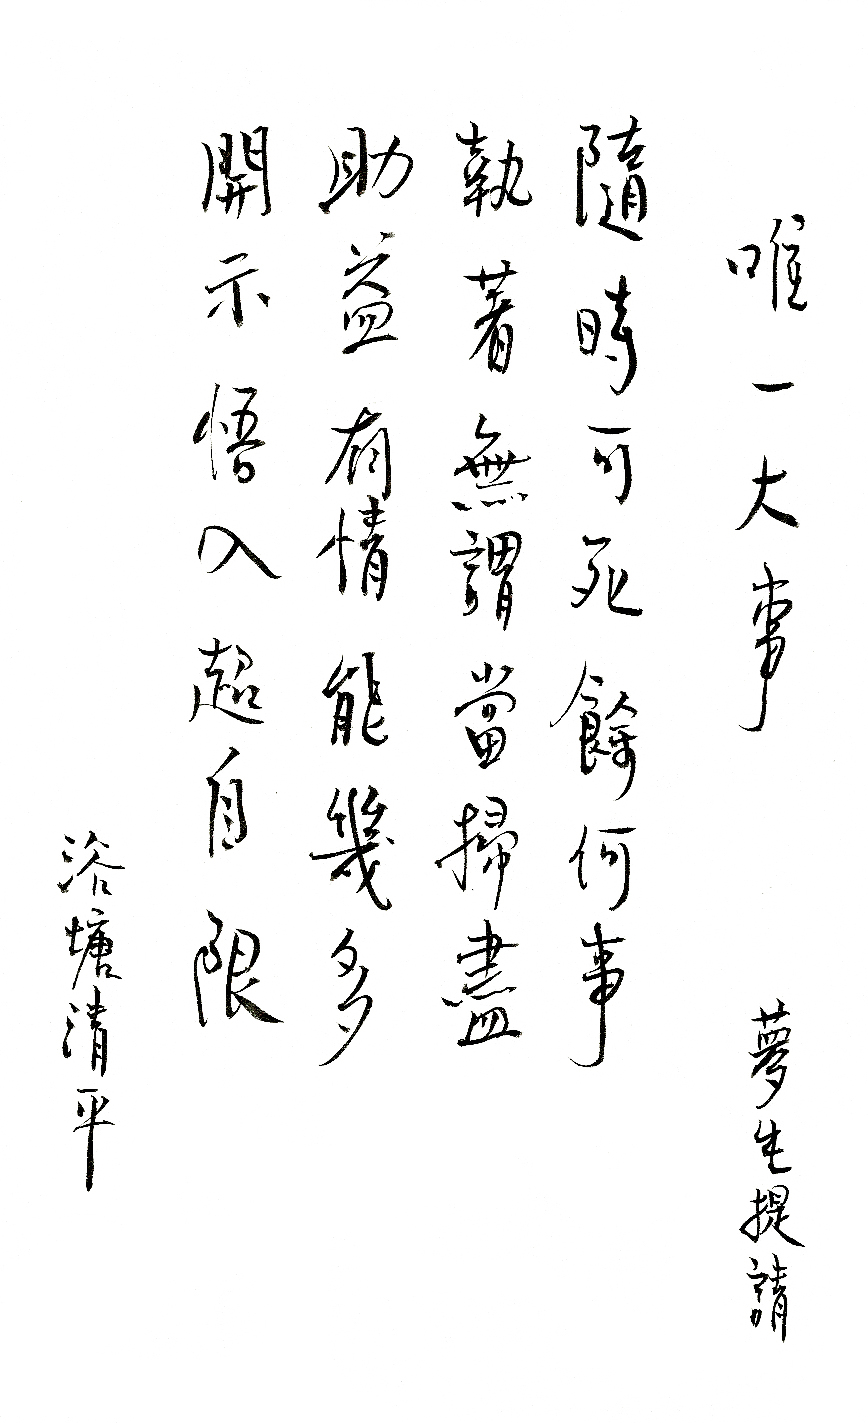 唯一大事 夢生提請
隨時可死餘何事
執著無謂當掃盡
助益有情能幾多
開示悟入超自限
浴塘清平